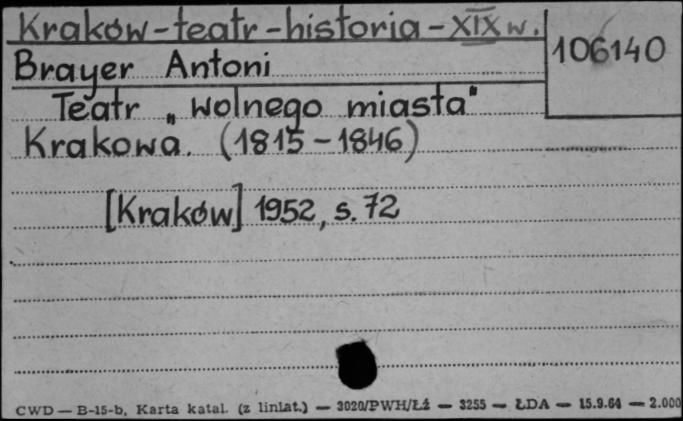 Kraków-teatr-historia-XIX w.
106140
Brayer Antoni
Teatr „wolnego miasta"
Krakowa. (1815-1846)
[Kraków] 1952, s. 72
CWD — B-15-b, Karta katal. (z liniat.) — 3020/PWH/Łż — 3255 — ŁDA — 15.9.64 — 2.000